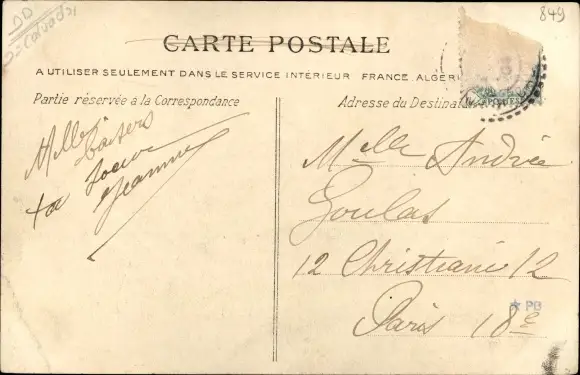 849
CARTE POSTALE
A UTILISER SEULEMENT DANS LE SERVICE INTÉRIEUR FRANCE, ALGÉRI
Partie réservée à la Correspondance
Adresse du Destinat
Mille
baisers
ta soeur
Jeanne
Melle Andrée
Goulas
12 Christiani 12
Paris 18e
PB